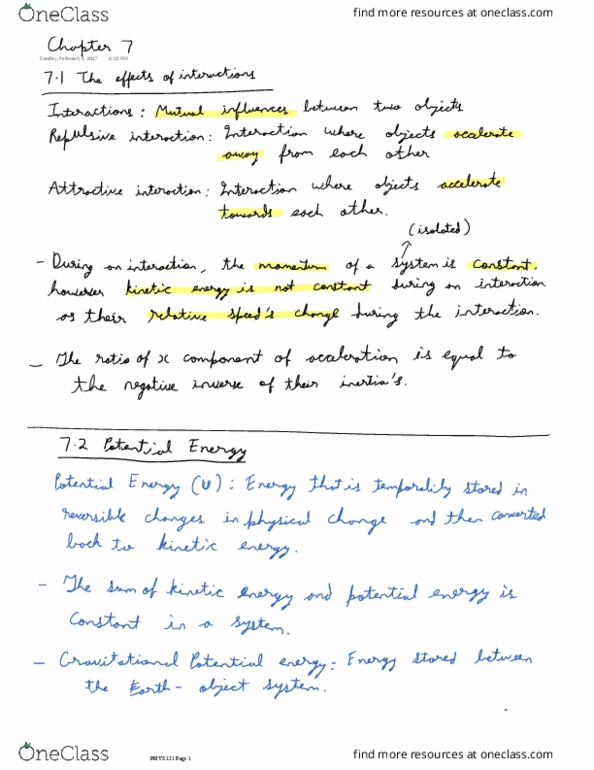 OneClass
find more resources at oneclass.com
Chapter 7
Sunday, February 5, 2017 4:18 PM
7.1 The effects of interactions
Interactions: Mutual influences between two objects
Repulsive interaction: Interaction where objects accelerate
away from each other
Attractive interaction: Interaction where objects accelerate
towards each other.
(isolated)
- During an interaction, the momentum of a system is constant.
however kinetic energy is not constant during an interaction
as their relative speed's change during the interaction.
- The ratio of x component of acceleration is equal to
the negative inverse of their inertia's.
7.2 Potential Energy
Potential Energy (U): Energy that is temporalily stored in
reversible changes in physical change and then converted
back to kinetic energy.
- The sum of kinetic energy and potential energy is
constant in a system.
- Gravitational Potential energy: Energy stored between
the Earth - object system.
OneClass
PHYS 121 Page 1
find more resources at oneclass.com